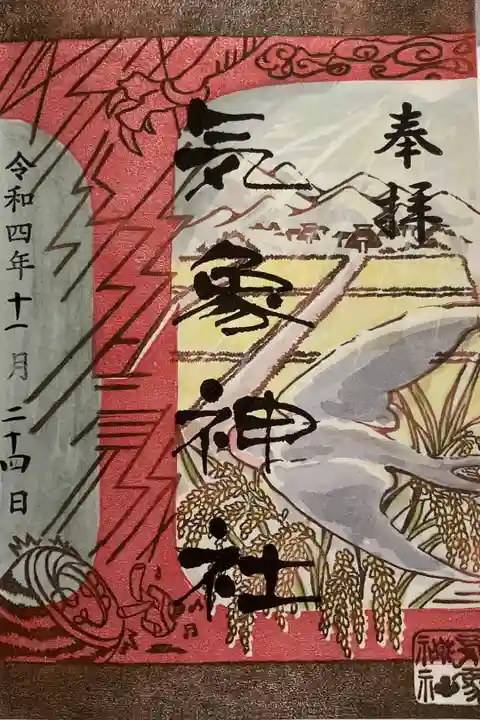 奉拝
気象神社
令和四年十一月二十四日
気象神社